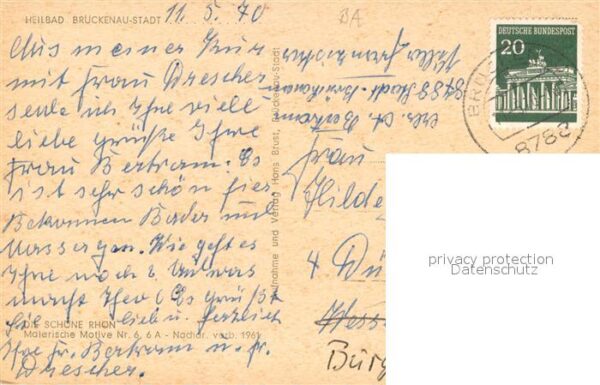 HEILBAD BRÜCKENAU-STADT 11.5.70
BA
Aus meiner Kur
mit Frau Drescher
sende ich Ihne viell
liebe Grüße Ihre
Frau Bertram. Es
ist sehr schön hier
Bekommen Bäder und
Massagen. Wie geht es
Ihne noch & Und was
macht Theo & Es grüßt
Sie lieb u. herzlich
Ihre fr. Bertram u. fr.
Drescher.
DIE SCHÖNE RHÖN
Malerische Motive Nr. 6, 6 A - Nachdr. verb. 1961
Aufnahme und Verlag Hans Brust, Brückenau-Stadt
Abs. A. Bertram
8788 Stadt-Brückenau
Villa
DEUTSCHE BUNDESPOST
20
BRÜ
8788
Frau
Hilde
4 Dü
Hess
Bürg
privacy protection
Datenschutz